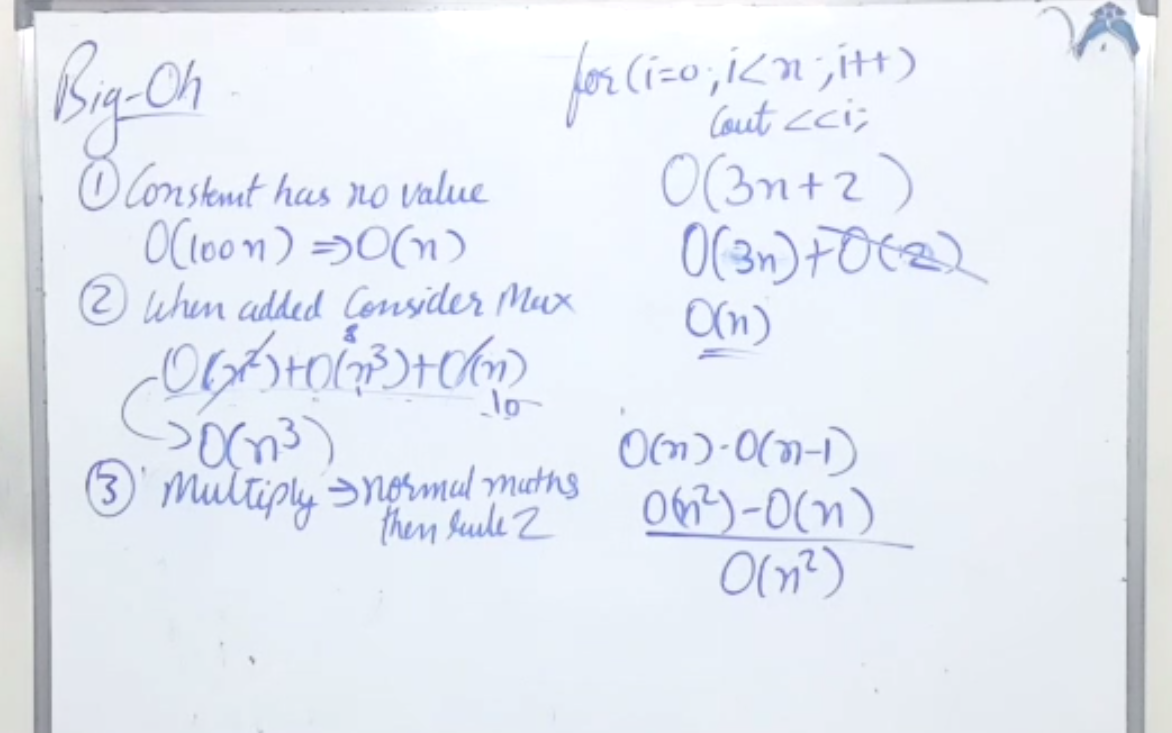 Big-Oh
① Constant has no value
O(100n) ⇒ O(n)
② When added Consider Max
O(n²)+O(n³)+O(n)
8
10
→ O(n³)
③ Multiply ⇒ normal maths
then rule 2
for (i=0; i<n; i++)
Cout <<i;
O(3n+2)
O(3n)+O(2)
O(n)
O(n)·O(n-1)
O(n²)-O(n)
O(n²)